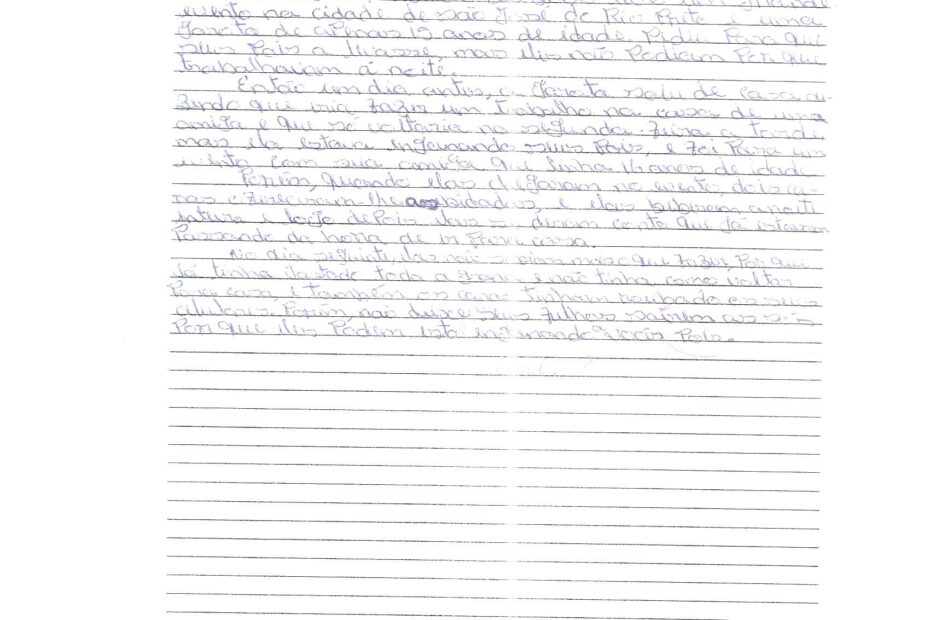 grande
evento na cidade de são José de Rio Preto e uma
garota de apenas 15 anos de idade Pidiu Para que
seus Pais a levasse, mas eles não Podiam Por que
trabalhavam á noite.
Então um dia antes, a garota saiu de casa di-
zendo que iria fazer um trabalho na casa de uma
amiga e que só voltaria na segunda-feira a tarde
mas ela estava enganando seus Pais, e foi Para um
evento com sua amiga que tinha 16 anos de idade
Porém, quando elas chegaram no evento, dois ca-
ras ofereceram-lhe bebidas, e elas beberam a noite
inteira e depois elas se deram conta que já estavam
Passando da hora de ir Para casa.
No dia seguinte, elas não sabiam mais o que fazer, Por que
já tinha gastado toda a grana e não tinha como voltar
Para casa, e também os caras tinham roubado os seus
celulares. Porém, não deixe seus filhos sairem aos sós
Por que eles Podem está enganando vocês Pais.